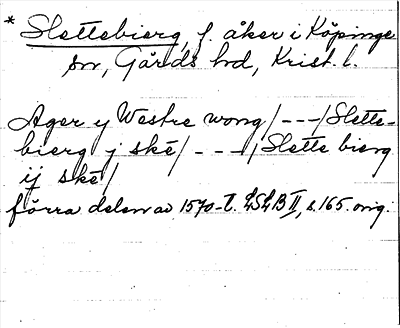 * Slettebierg, f. åker i Köpinge
sn, Gärds hd, Krist. l.
Ager y Westre wong / --- / Slette-
bierg j skē / --- / Slette bierg
ij skē /
förra delen av 1570-t. LSLB II, s. 165. orig.